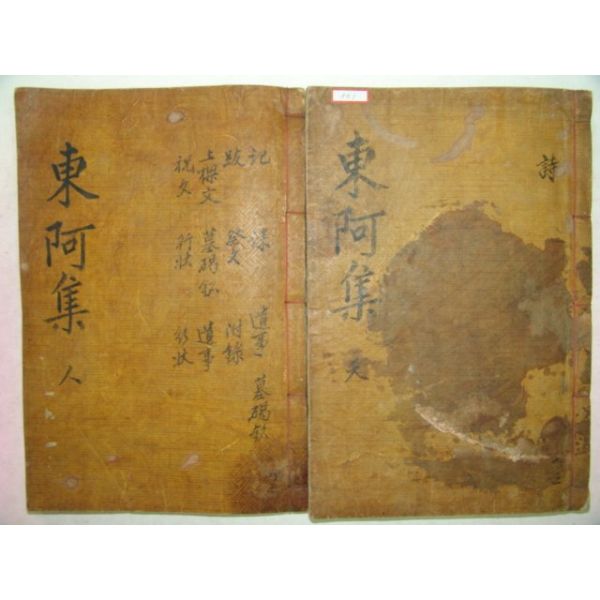 東阿集 天
詩
東阿集 人
記 遺事 墓碣銘
跋 祭文 附錄
上樑文 墓碣銘 遺事
祝文 行狀 行狀